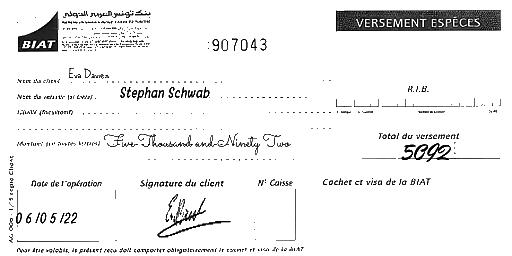 بنك تونس العربي الدولي
BIAT
VERSEMENT ESPÈCES
907043
Nom du client Eva Davies
Nom du verseur (si tiers) : Stephan Schwab
R.I.B.
Libellé (facultatif)
Montant (en toutes lettres) Five Thousand and Ninety Two
Total du versement
5092
Date de l'opération
Signature du client
N° Caisse
Cachet et visa de la BIAT
06/05/22
copie Client
Pour être valable, le présent reçu doit comporter obligatoirement le cachet et visa de la BIAT